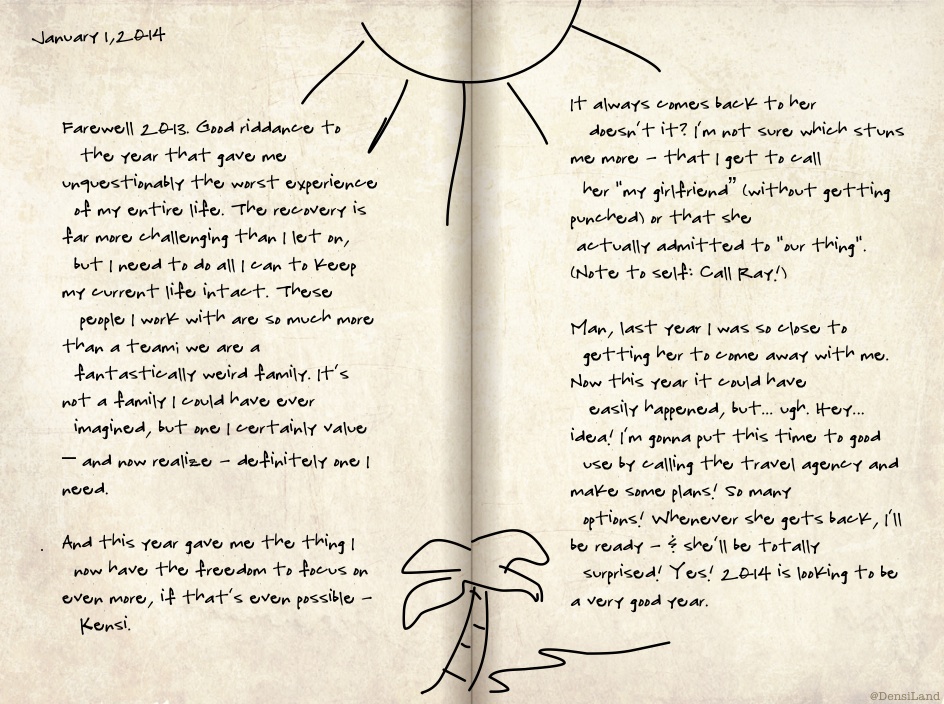 January 1, 2014
Farewell 2013. Good riddance to
the year that gave me
unquestionably the worst experience
of my entire life. The recovery is
far more challenging than I let on,
but I need to do all I can to keep
my current life intact. These
people I work with are so much more
than a team; we are a
fantastically weird family. It's
not a family I could have ever
imagined, but one I certainly value
— and now realize – definitely one I
need.
And this year gave me the thing I
now have the freedom to focus on
even more, if that's even possible –
Kensi.
It always comes back to her
doesn't it? I'm not sure which stuns
me more – that I get to call
her "my girlfriend” (without getting
punched) or that she
actually admitted to "our thing".
(Note to self: Call Ray!)
Man, last year I was so close to
getting her to come away with me.
Now this year it could have
easily happened, but... ugh. Hey...
idea! I'm gonna put this time to good
use by calling the travel agency and
make some plans! So many
options! Whenever she gets back, I'll
be ready – & she'll be totally
surprised! Yes! 2014 is looking to be
a very good year.
@DensiLand